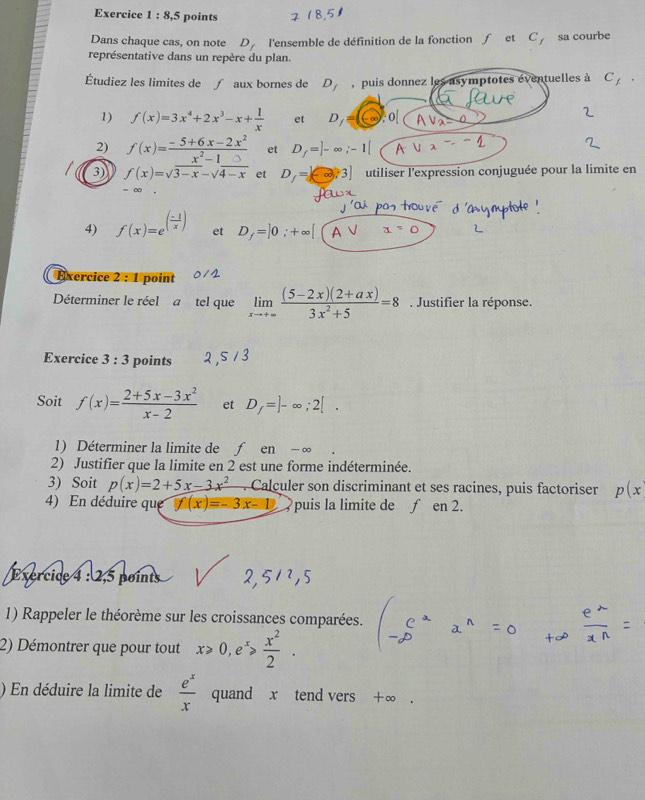 Exercice 1 : 8,5 points 7 / 8,5
Dans chaque cas, on note D_f l'ensemble de définition de la fonction f et C_f sa courbe
représentative dans un repère du plan.
Étudiez les limites de f aux bornes de D_f , puis donnez les asymptotes éventuelles à C_f .
à faire
1) f(x)=3x⁴+2x³-x+1/x et D_f=]-∞;0[ AV x=0 2
2) f(x)=(-5+6x-2x²)/(x²-1) et D_f=]-∞;-1[ AV x=-1 2
1 3) f(x)=√(3-x)-√(4-x) et D_f=]-∞;3] utiliser l'expression conjuguée pour la limite en
-∞ .
faux
j'ai pas trouvé d'asymptote !
4) f(x)=e^(-1/x) et D_f=]0;+∞[ AV x=0 2
Exercice 2 : 1 point 0/1
Déterminer le réel a tel que lim x→+∞ (5-2x)(2+ax)/(3x²+5)=8 . Justifier la réponse.
Exercice 3 : 3 points 2,5/3
Soit f(x)=(2+5x-3x²)/(x-2) et D_f=]-∞;2[ .
1) Déterminer la limite de f en -∞ .
2) Justifier que la limite en 2 est une forme indéterminée.
3) Soit p(x)=2+5x-3x² . Calculer son discriminant et ses racines, puis factoriser p(x
4) En déduire que f(x)=-3x-1 , puis la limite de f en 2.
Exercice 4 : 2,5 points V 2,5/2,5
1) Rappeler le théorème sur les croissances comparées. ( -∞ e^x x^n = 0 +∞ e^x/x^n =
2) Démontrer que pour tout x≥0, e^x≥x²/2 .
) En déduire la limite de e^x/x quand x tend vers +∞ .